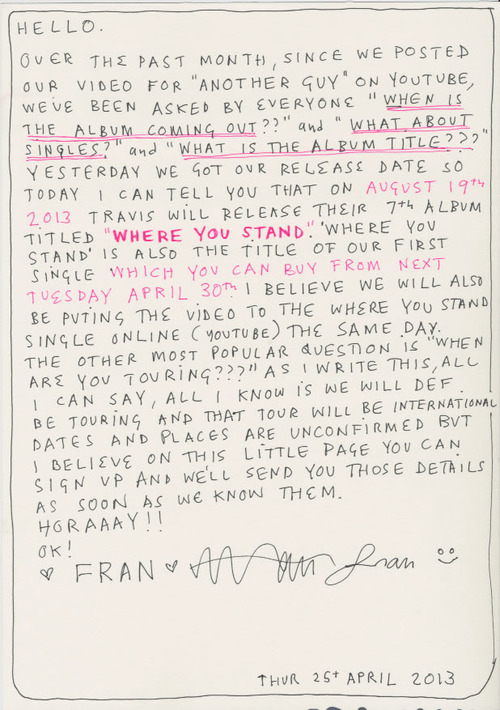 HELLO.
OVER THE PAST MONTH, SINCE WE POSTED
OUR VIDEO FOR "ANOTHER GUY" ON YOUTUBE,
WE'VE BEEN ASKED BY EVERYONE "WHEN IS
THE ALBUM COMING OUT??" and "WHAT ABOUT
SINGLES?" and "WHAT IS THE ALBUM TITLE???"
YESTERDAY WE GOT OUR RELEASE DATE SO
TODAY I CAN TELL YOU THAT ON AUGUST 19th
2013 TRAVIS WILL RELEASE THEIR 7th ALBUM
TITLED "WHERE YOU STAND". 'WHERE YOU
STAND' IS ALSO THE TITLE OF OUR FIRST
SINGLE WHICH YOU CAN BUY FROM NEXT
TUESDAY APRIL 30TH. I BELIEVE WE WILL ALSO
BE PUTING THE VIDEO TO THE WHERE YOU STAND
SINGLE ONLINE (YOUTUBE) THE SAME DAY.
THE OTHER MOST POPULAR QUESTION IS "WHEN
ARE YOU TOURING???" AS I WRITE THIS, ALL
I CAN SAY, ALL I KNOW IS WE WILL DEF.
BE TOURING AND THAT TOUR WILL BE INTERNATIONAL
DATES AND PLACES ARE UNCONFIRMED BUT
I BELIEVE ON THIS LITTLE PAGE YOU CAN
SIGN UP AND WE'LL SEND YOU THOSE DETAILS
AS SOON AS WE KNOW THEM.
HORAAAY!!
OK!
♡ FRAN ♡ Fran
THUR 25t APRIL 2013